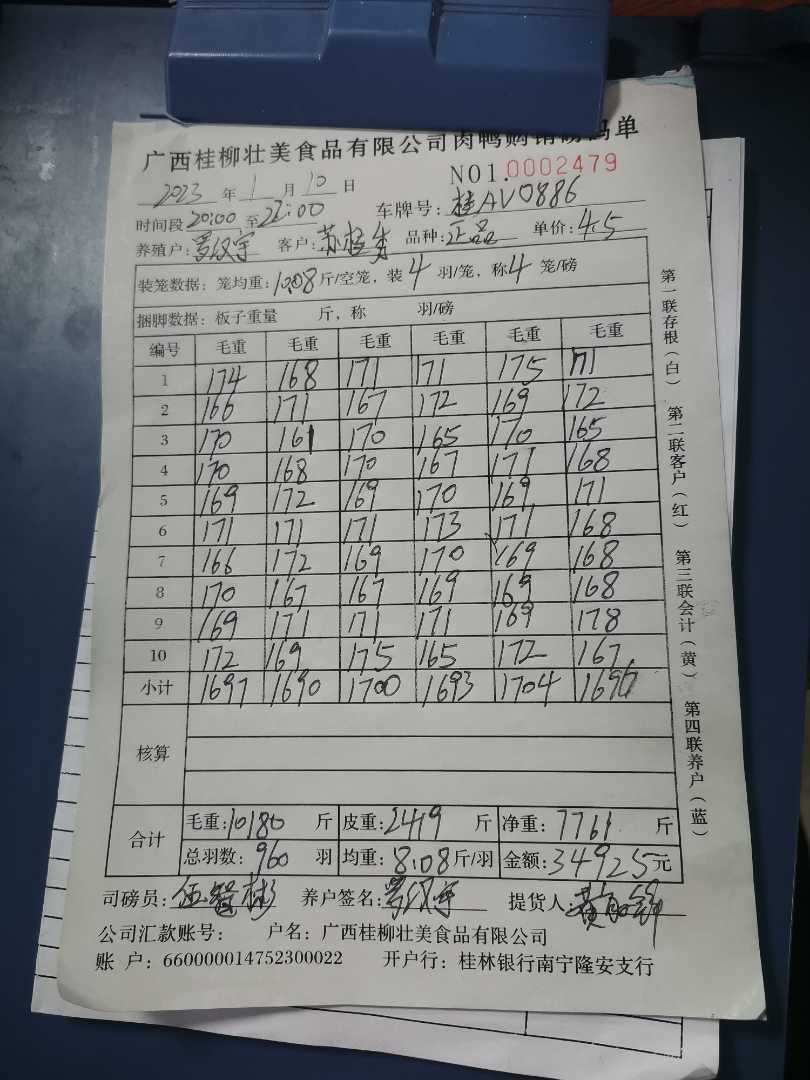 广西桂柳壮美食品有限公司肉鸭购销磅码单
NO1.0002479
2023 年 1 月 10 日
时间段 20:00 至 22:00 车牌号: 桂AV0886
养殖户: 罗汉宇 客户: 苏桂 品种: 正品 单价: 4.5
装笼数据: 笼均重: 10.08 斤/空笼, 装 4 羽/笼, 称 4 笼/磅
捆脚数据: 板子重量 斤, 称 羽/磅
编号 毛重 毛重 毛重 毛重 毛重 毛重
1 174 168 171 171 175 171
2 166 171 167 172 169 172
3 170 161 170 165 170 165
4 170 168 170 167 171 168
5 169 172 169 170 169 171
6 171 171 171 173 171 168
7 166 172 169 170 169 168
8 170 167 167 169 169 168
9 169 171 171 171 169 178
10 172 169 175 165 172 167
小计 1697 1690 1700 1693 1704 1696
核算
合计 毛重: 10180 斤 皮重: 2419 斤 净重: 7761 斤
总羽数: 960 羽 均重: 8.08 斤/羽 金额: 34925 元
司磅员: 伍 彬 养户签名: 罗汉宇 提货人: 黄
公司汇款账号: 户名: 广西桂柳壮美食品有限公司
账 户: 660000014752300022 开户行: 桂林银行南宁隆安支行
第一联存根(白) 第二联客户(红) 第三联会计(黄) 第四联养户(蓝)